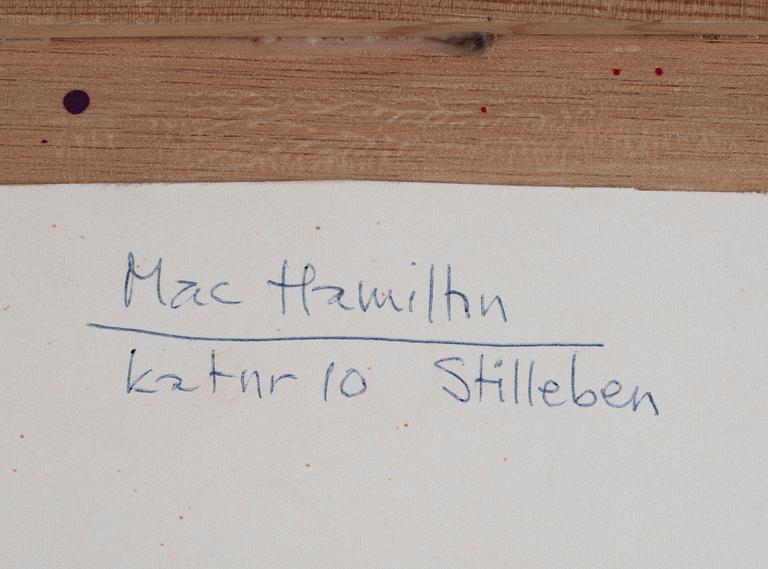 Mac Hamilton
katnr 10 Stilleben